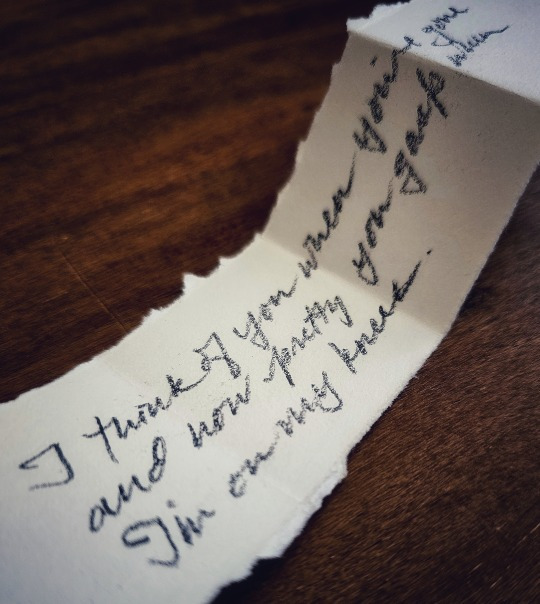 I think of you when you're gone
and how pretty you gasp when
I'm on my knees.